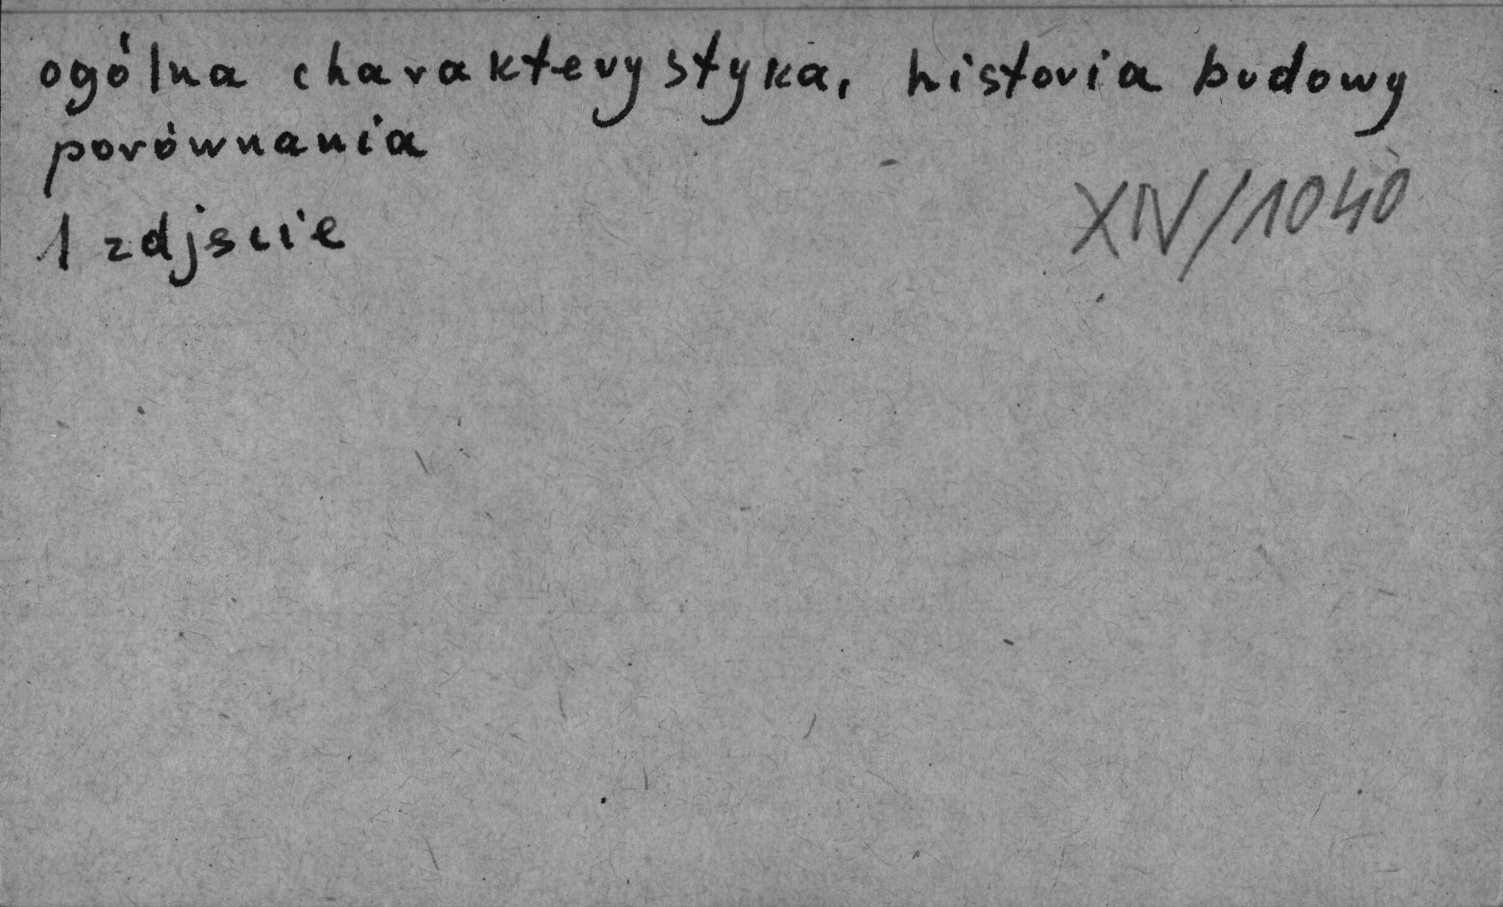 ogólna charakterystyka, historia budowy
porównania
1 zdjscie
XIV/1040